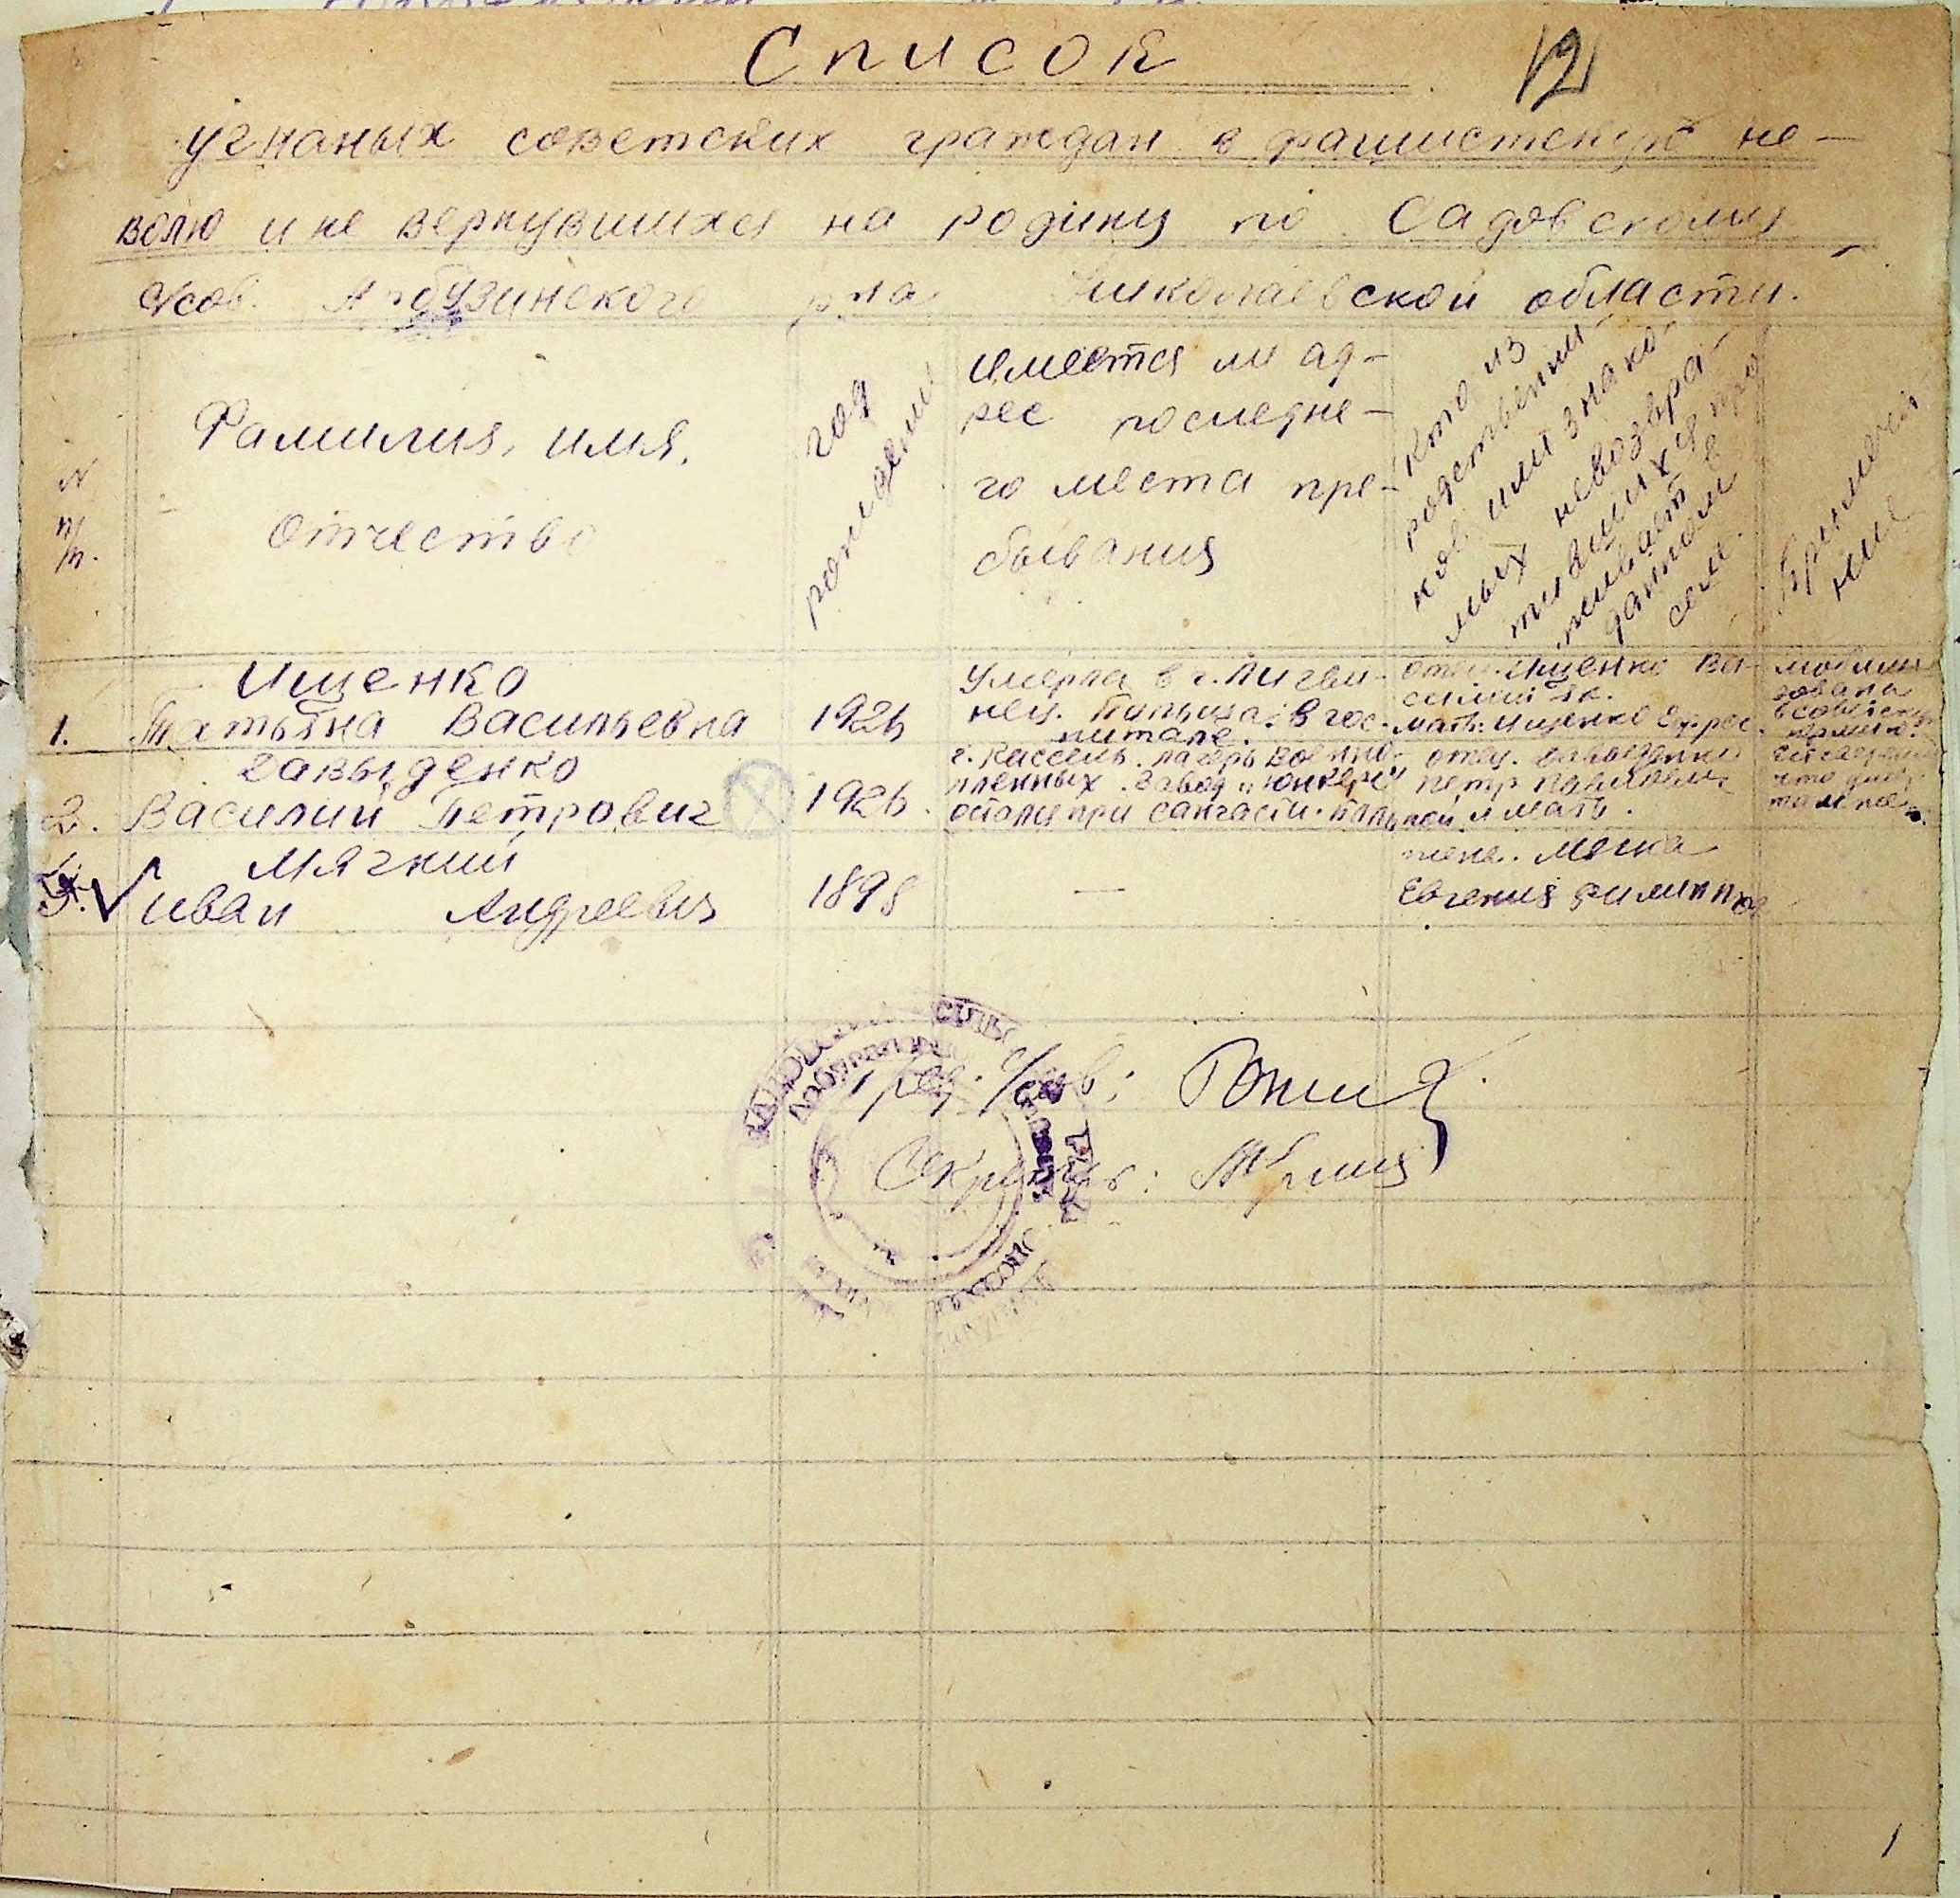 Список
12
угнаных советских граждан в фашистскую не-
волю и не вернувшихся на родину по Садовскому
с/сов. Арбузинского р-на Николаевской области.
N п/п.
Фамилия, имя, Отчество
год рождения
имеется ли ад-
рес последне-
го места пре-
бывания
Кто из
родственни-
ков или знако-
мых невозвра-
тившихся про
живает в
данном
сел.
Примеча
ние
1.
Ищенко
Татьяна Васильевна
1926
Умерла в г.
Польша. В гос-
питале.
отец. Ищенко Ва-
силий
мать. Ищенко
мобили
зована
в советск
армию.
2.
Давыденко
Василий Петрович
1926.
г. Кассель. лагерь военно-
пленных. Завод "Юнкерс"
остался при санчасти.
отец. Давыденко
Петр Павлович
и мать.
Мягкий
Иван Андреевич
1898
—
жена. Мягка
Евгения
Пред. с/сов:
Секретарь:
1